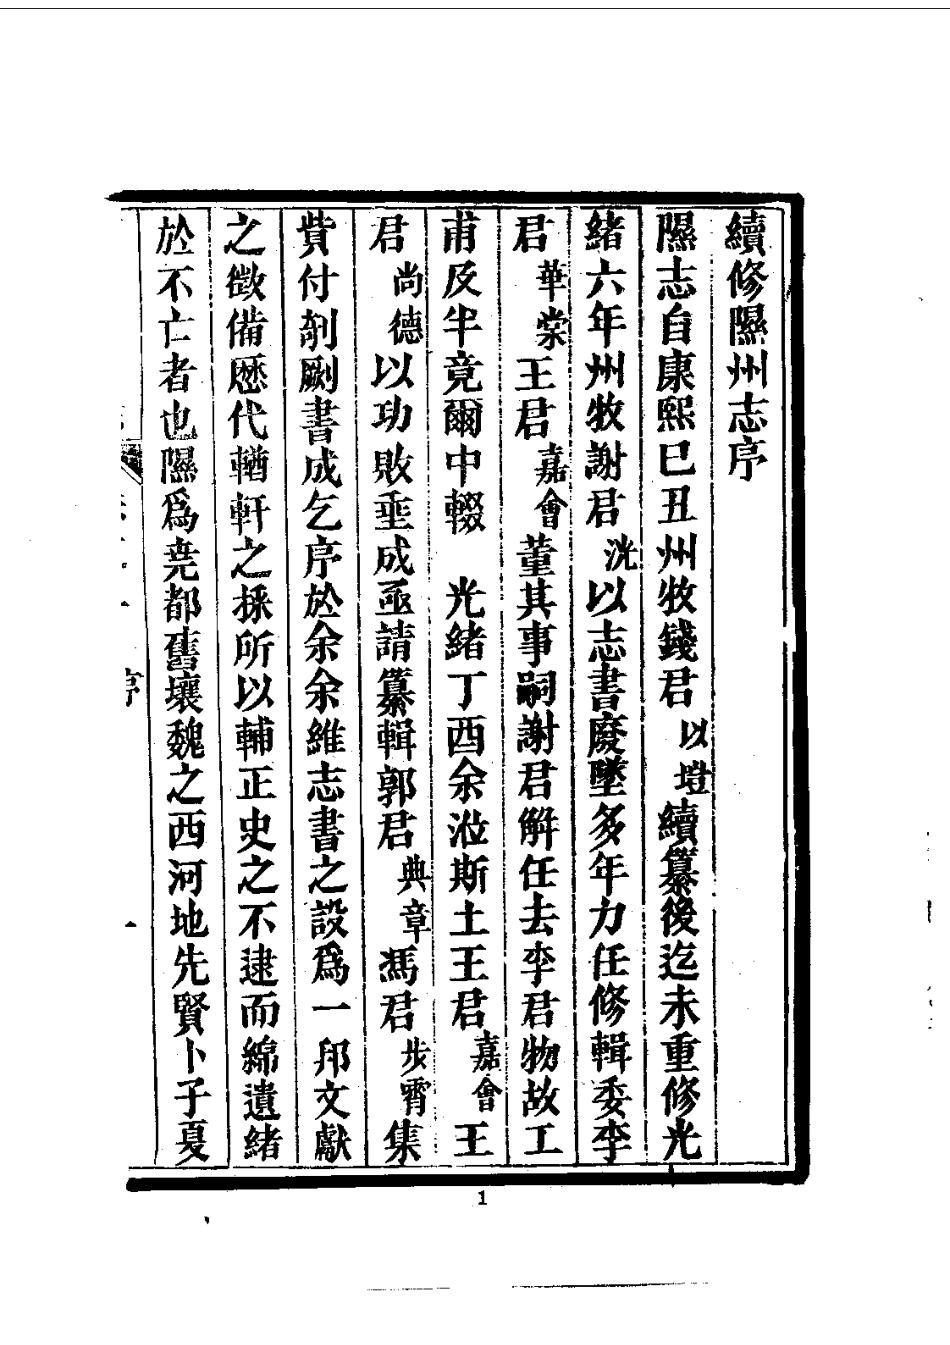 續修隰州志序
隰志自康熙己丑州牧錢君以塏續纂後迄未重修光
緒六年州牧謝君洸以志書廢墜多年力任修輯委李
君華棠王君嘉會董其事嗣謝君解任去李君物故工
甫及半竟爾中輟　光緒丁酉余涖斯土王君嘉會王
君尚德以功敗垂成亟請纂輯郭君典章馮君步霄集
貲付剞劂書成乞序於余余維志書之設爲一邦文獻
之徵備歷代輶軒之採所以輔正史之不逮而綿遺緒
於不亡者也隰爲堯都舊壤魏之西河地先賢卜子夏
序
一
1